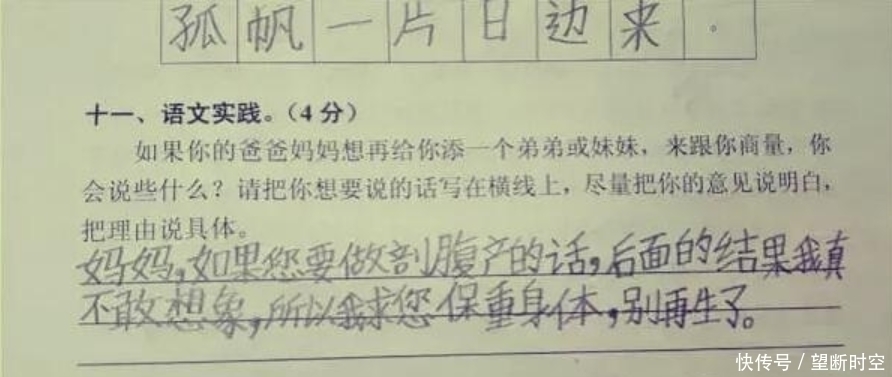 孤帆一片日边来。
十一、语文实践。（4分）
如果你的爸爸妈妈想再给你添一个弟弟或妹妹，来跟你商量，你
会说些什么？请把你想要说的话写在横线上，尽量把你的意见说明白，
把理由说具体。
妈妈，如果您要做剖腹产的话，后面的结果我真
不敢想象，所以我求您保重身体，别再生了。
快传号/望断时空